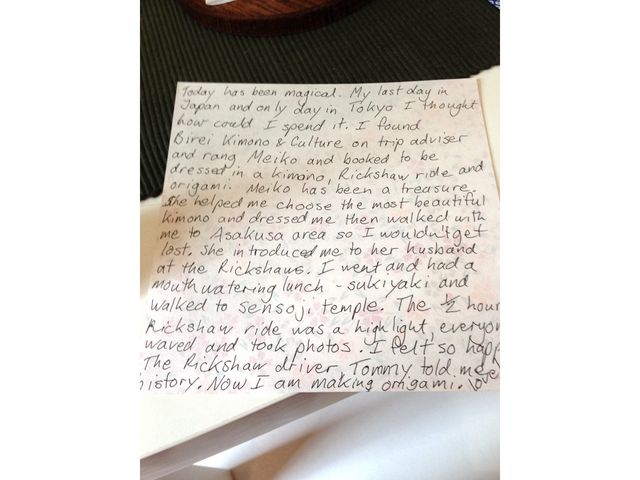 Today has been magical. My last day in
Japan and only day in Tokyo I thought
how could I spend it. I found
Birei Kimono & Culture on trip adviser
and rang Meiko and booked to be
dressed in a kimono, Rickshaw ride and
origami. Meiko has been a treasure.
She helped me choose the most beautiful
kimono and dressed me then walked with
me to Asakusa area so I wouldn't get
lost. She introduced me to her husband
at the Rickshaws. I went and had a
mouth watering lunch - sukiyaki and
walked to sensoji temple. The ½ hour
Rickshaw ride was a highlight, everyon
waved and took photos. I felt so happ
The Rickshaw driver, Tommy told me
history. Now I am making origami. love